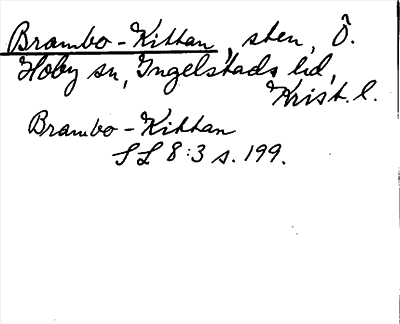 Brambo-Kittan, sten, Ö.
Hoby sn, Ingelstads hd,
Krist. l.
Brambo-Kittan
SL 8:3 s. 199.